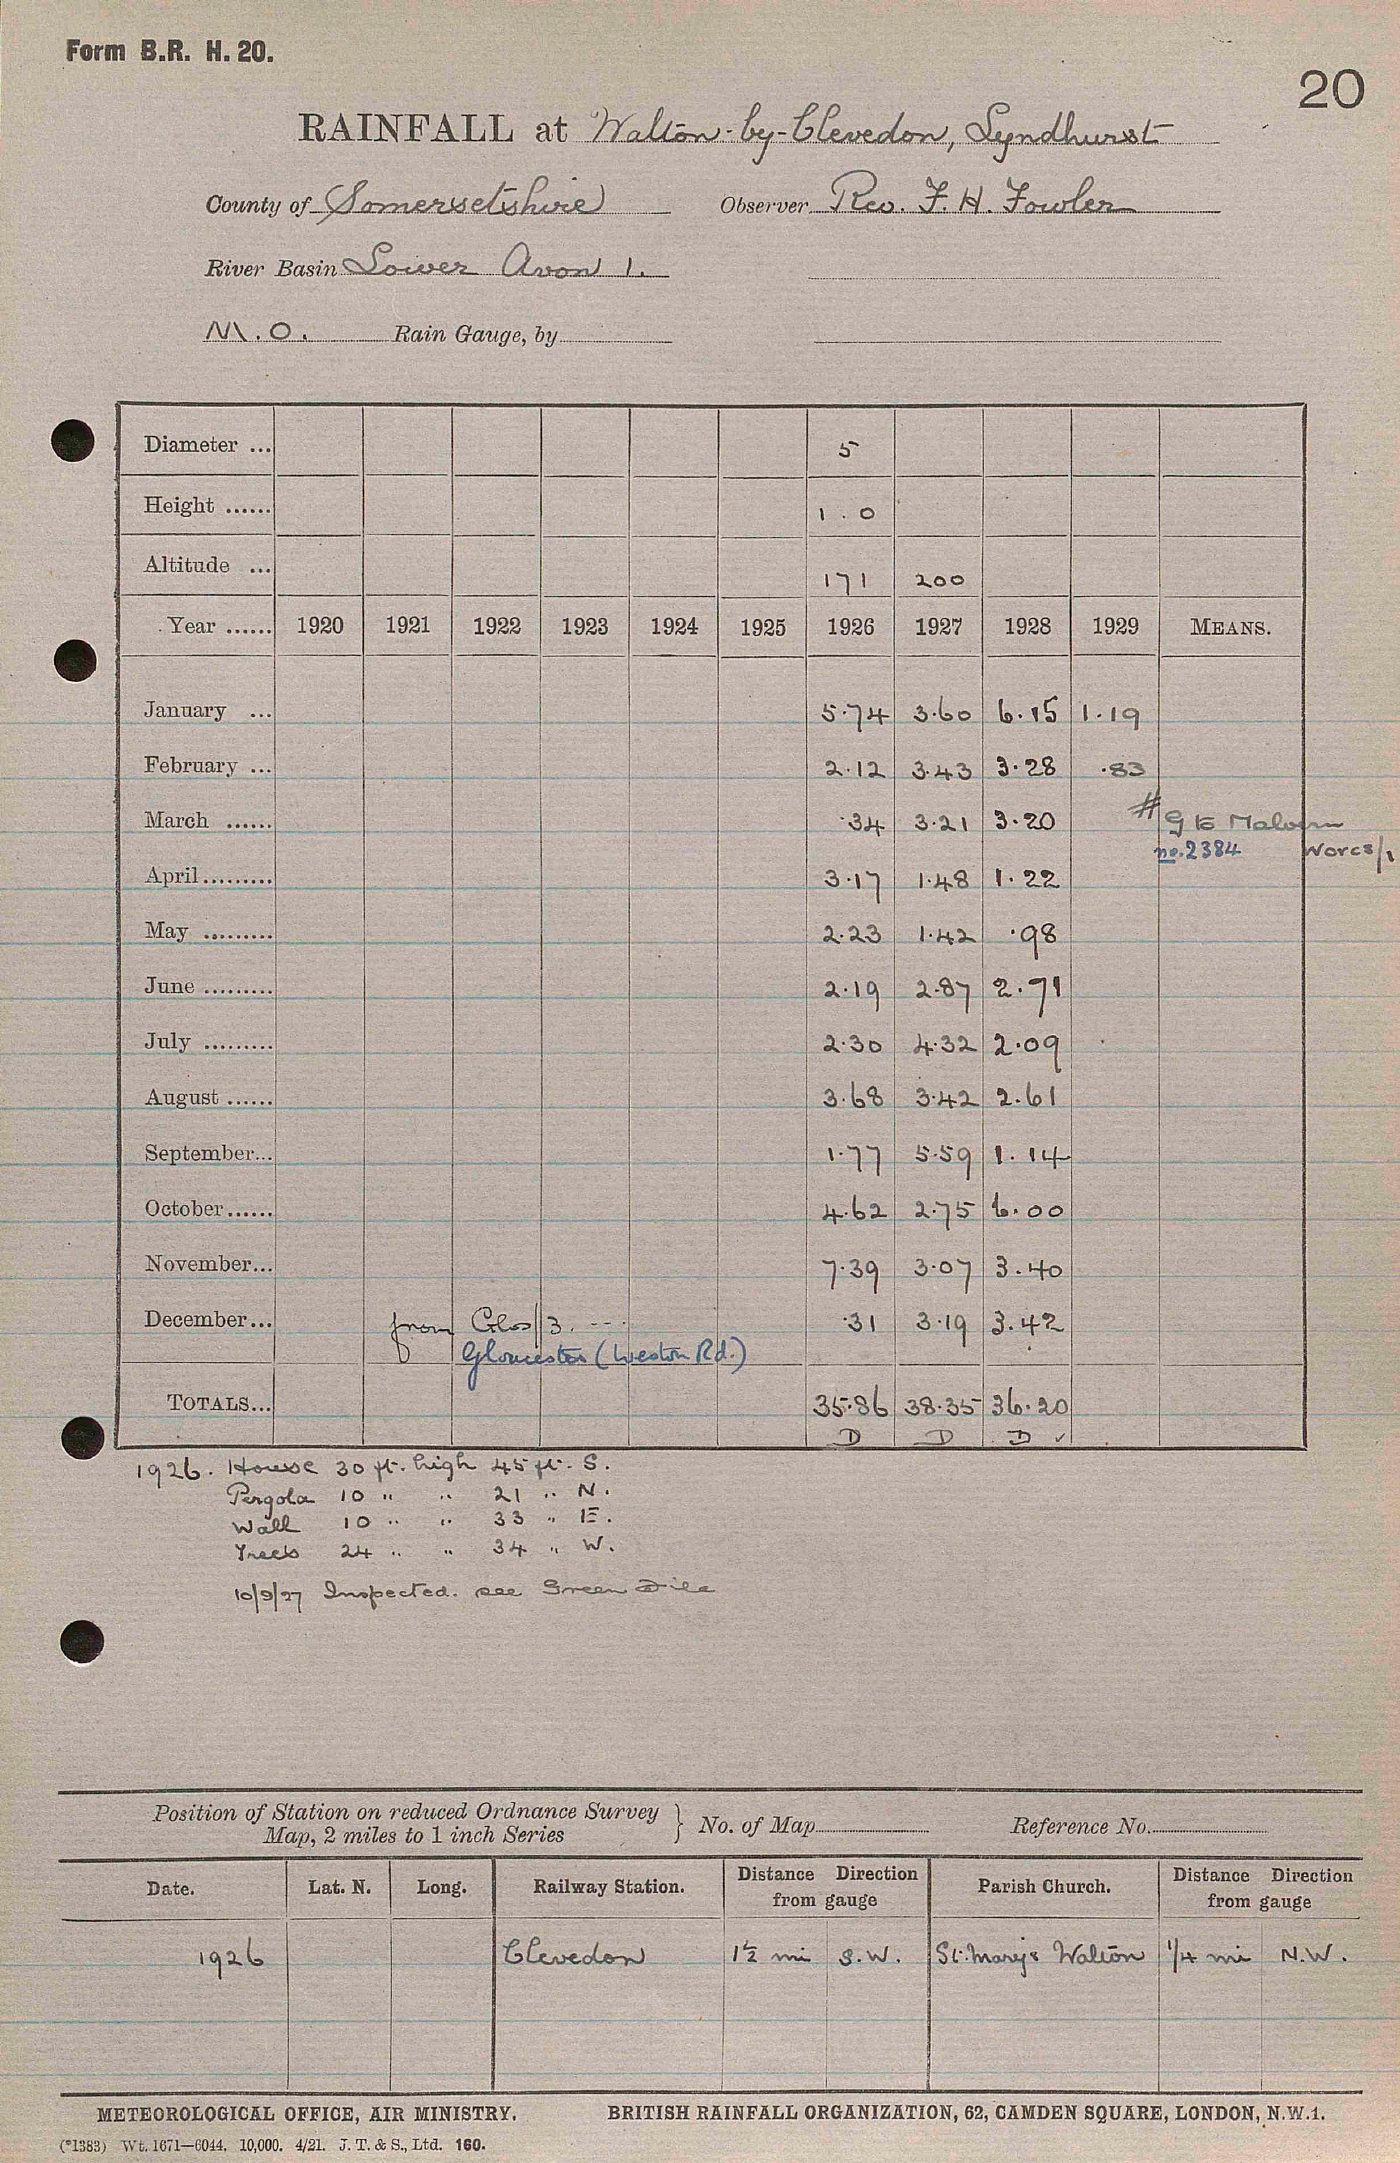 Form B.R. H. 20.
20
RAINFALL at Walton-by-Clevedon, Lyndhurst
County of Somersetshire Observer Rev. F. H. Fowler
River Basin Lower Avon 1.
M.O. Rain Gauge, by
Diameter ... 5
Height ...... 1.0
Altitude ... 171 200
Year ...... 1920 1921 1922 1923 1924 1925 1926 1927 1928 1929 MEANS.
January ... 5.74 3.60 6.15 1.19
February ... 2.12 3.43 3.28 .83
March ...... .34 3.21 3.20 # G to Malvern
no. 2384 Worcs/1
April ......... 3.17 1.48 1.22
May ......... 2.23 1.42 .98
June ......... 2.19 2.87 2.71
July ......... 2.30 4.32 2.09
August ...... 3.68 3.42 2.61
September... 1.77 5.59 1.14
October ...... 4.62 2.75 6.00
November... 7.39 3.07 3.40
December... from Glos/3. --- .31 3.19 3.42
Gloucester (Weston Rd.)
TOTALS... 35.86 38.35 36.20
D D D ✓
1926. House 30 ft. high 45 ft. S.
Pergola 10 " " 21 " N.
Wall 10 " " 33 " E.
Trees 24 " " 34 " W.
10/9/27 Inspected. see Green File
Position of Station on reduced Ordnance Survey
Map, 2 miles to 1 inch Series } No. of Map Reference No.
Date. Lat. N. Long. Railway Station. Distance Direction from gauge Parish Church. Distance Direction from gauge
1926 Clevedon 1½ mi S.W. St. Mary's Walton 1/4 mi N.W.
METEOROLOGICAL OFFICE, AIR MINISTRY. BRITISH RAINFALL ORGANIZATION, 62, CAMDEN SQUARE, LONDON, N.W.1.
(*1383) Wt. 1671—6044. 10,000. 4/21. J. T. & S., Ltd. 160.